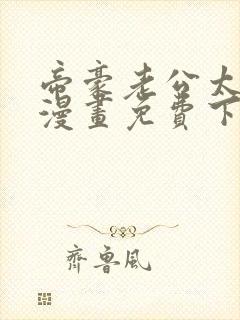 帝豪老公太
漫畫免費下
齊魯風